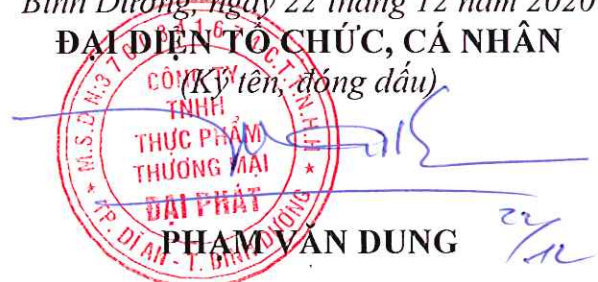 Bình Dương, ngày 22 tháng 12 năm 2020
ĐẠI DIỆN TỔ CHỨC, CÁ NHÂN
(Ký tên, đóng dấu)
CÔNG TY
TNHH
THỰC PHẨM
THƯƠNG MẠI
ĐẠI PHÁT
TP. DĨ AN - T. BÌNH DƯƠNG
PHẠM VĂN DUNG
22/12